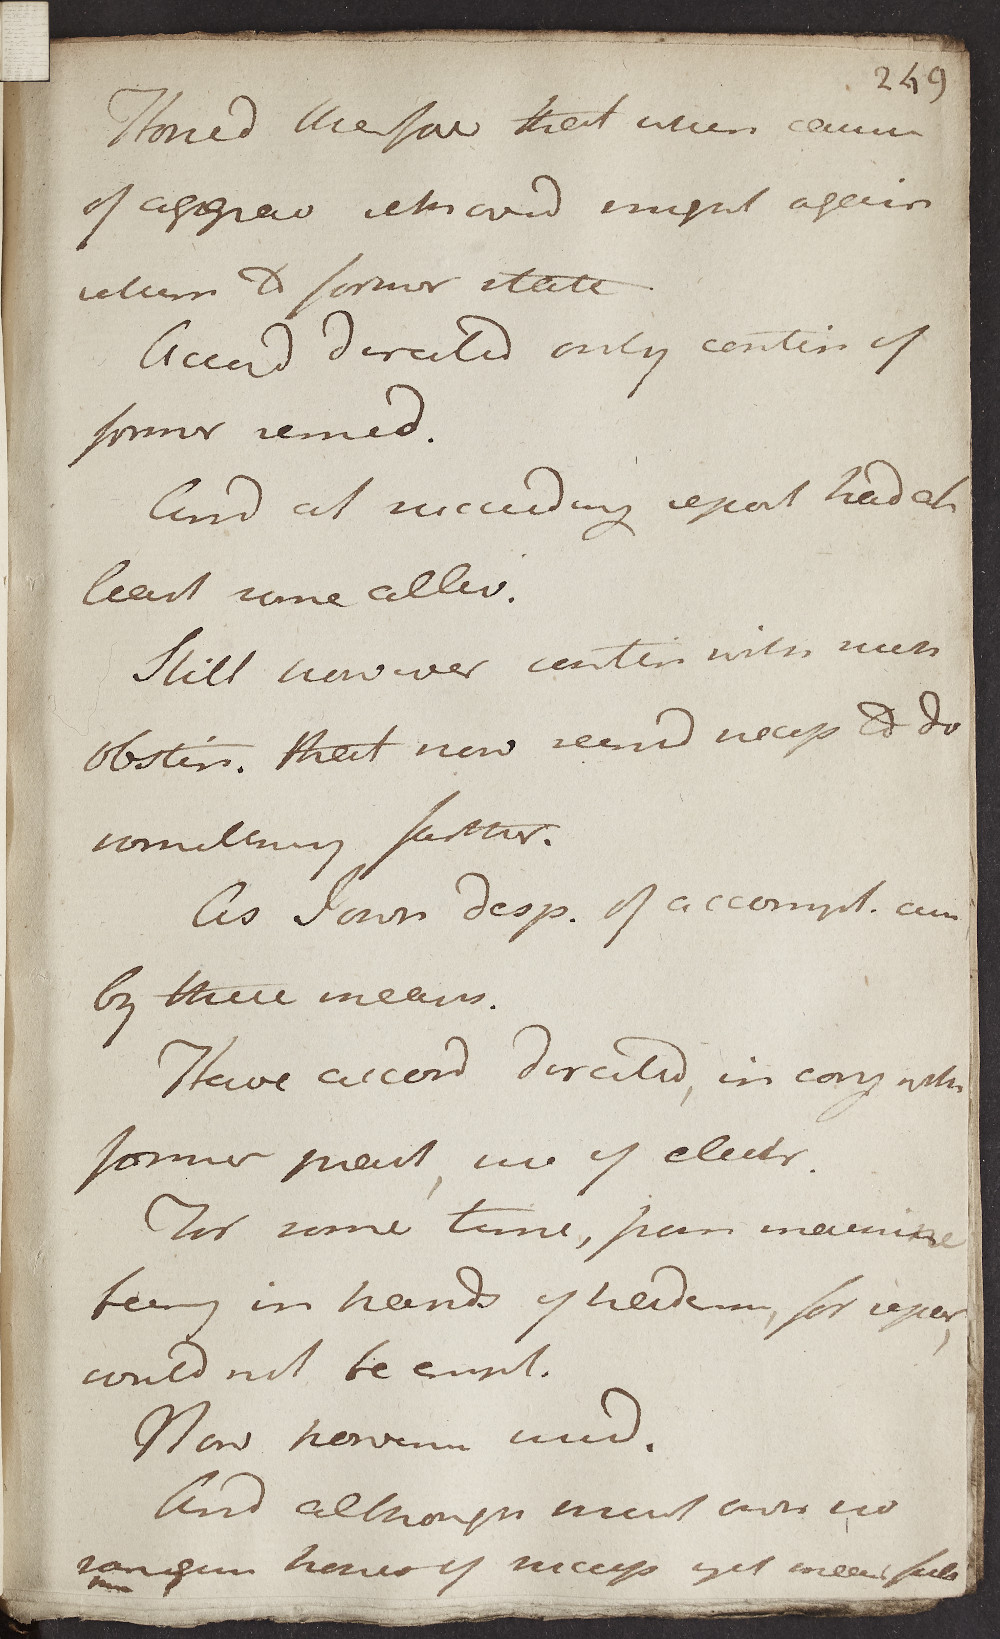 249
Hoped therefore that when caus
of aggrav remov'd might again
return to former state
Accord directed only contin of
former remed.
And at succeeding report had at
least some allev.
Still however contin with such
obstin. that now seemd necess to do
something farther.
As I own desp. of accompt. cure
by these means.
Have accord directed, in conj with
former pract, use of electr.
For some time, from machine
being in hands of tradesm, for repair,
could not be empl.
Now however used.
And although must own no
sanguin hopes of success yet